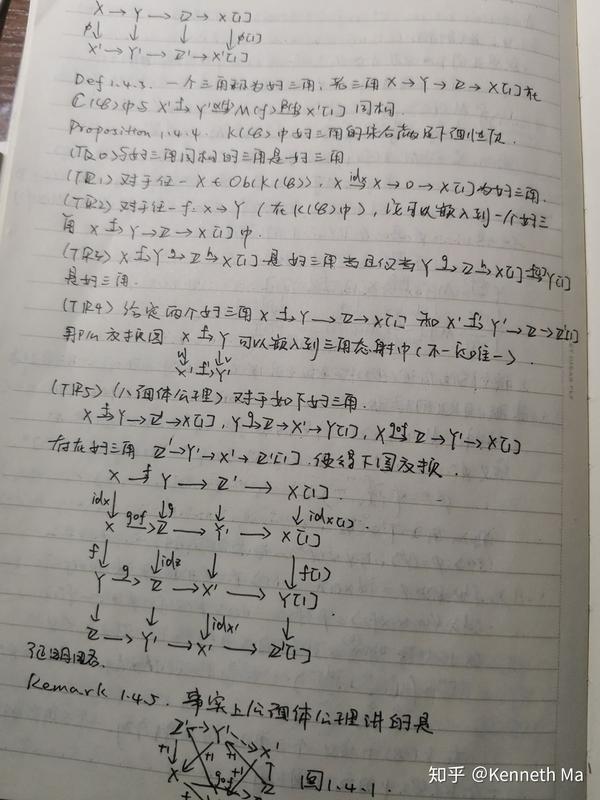 X → Y → Z → X[1]
φ↓ ↓ ↓ ↓φ[1]
X' → Y' → Z' → X'[1]
Def 1.4.3. 一个三角称为好三角, 若三角 X → Y → Z → X[1] 在
C(B)中与 X' f→ Y' α(f)→ M(f) β(f)→ X'[1] 同构.
Proposition 1.4.4. K(B)中好三角的集合满足下面性质.
(TR0) 与好三角同构的三角是好三角
(TR1) 对于任一 X ∈ Ob(K(B)), X idx→ X → 0 → X[1] 为好三角.
(TR2) 对于任一 f: X → Y (在K(B)中), 该可以嵌入到一个好三
角 X f→ Y → Z → X[1] 中.
(TR3) X f→ Y g→ Z h→ X[1] 是好三角当且仅当 Y g→ Z h→ X[1] → Y[1]
是好三角.
(TR4) 给定两个好三角 X f→ Y → Z → X[1] 和 X' f'→ Y' → Z → Z'[1]
交换图 X f→ Y 可以嵌入到三角态射中(不一定唯一).
u↓ ↓v
X' f'→ Y'
(TR5) (八面体公理) 对于如下好三角.
X f→ Y → Z' → X[1], Y g→ Z → X' → Y[1], X gof→ Z → Y' → X[1]
存在好三角 Z' → Y' → X' → Z'[1]. 使得下图交换.
X f→ Y → Z' → X[1].
idx↓ ↓g ↓ ↓idx[1].
X gof→ Z → Y' → X[1]
f↓ ↓idz ↓ ↓f[1]
Y g→ Z → X' → Y[1]
↓ ↓ ↓idx' ↓
Z → Y' → X' → Z'[1]
证明略.
Remark 1.4.5. 事实上八面体公理讲的是
Z' Y' X'
+1 +1 +1
X gof Z
图1.4.1.
知乎 @Kenneth Ma